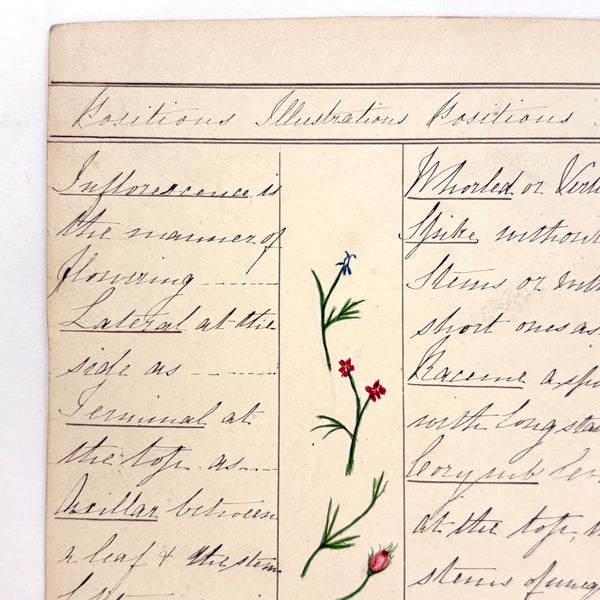 Positions Illustrations Positions
Inflorescence is
the manner of
flowering
Lateral at the
side as
Terminal at
the top as
Axillar between
a leaf & the stem
Whorled or
Spike without
stems or
short ones as
Raceme a
with long
Corymb
at the top
stems of